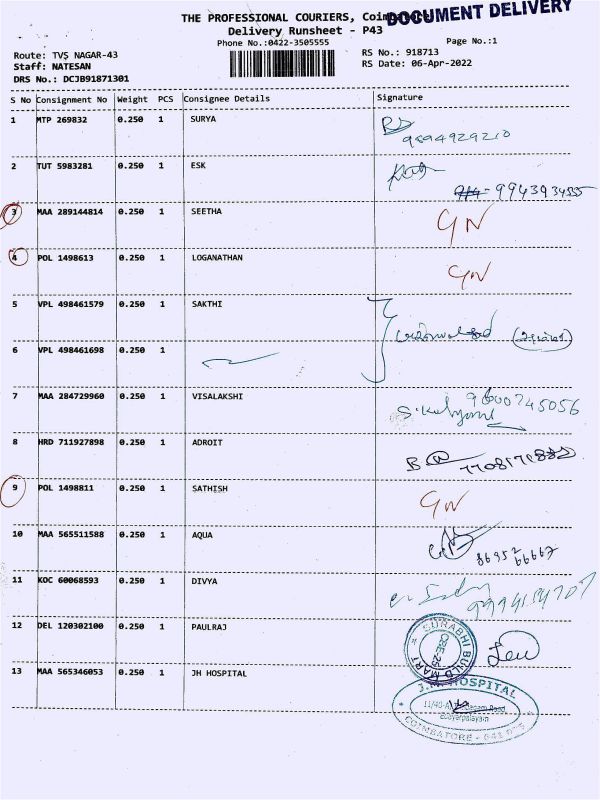 THE PROFESSIONAL COURIERS, Coimbatore
DOCUMENT DELIVERY
Delivery Runsheet - P43
Phone No.:0422-3505555
Page No.:1
Route: TVS NAGAR-43
RS No.: 918713
Staff: NATESAN
RS Date: 06-Apr-2022
DRS No.: DCJB91871301
S No Consignment No Weight PCS Consignee Details Signature
1 MTP 269832 0.250 1 SURYA
9894929210
2 TUT 5983281 0.250 1 ESK
9943934555
3 MAA 289144814 0.250 1 SEETHA
4 POL 1498613 0.250 1 LOGANATHAN
5 VPL 498461579 0.250 1 SAKTHI
6 VPL 498461698 0.250 1
7 MAA 284729960 0.250 1 VISALAKSHI
9600745056
8 HRD 711927898 0.250 1 ADROIT
9 POL 1498811 0.250 1 SATHISH
10 MAA 565511588 0.250 1 AQUA
86952
66667
11 KOC 60068593 0.250 1 DIVYA
12 DEL 120302100 0.250 1 PAULRAJ
SURABHI BUILD MART
CBE-25
13 MAA 565346053 0.250 1 JH HOSPITAL
J.H. HOSPITAL
Road
COIMBATORE - 641